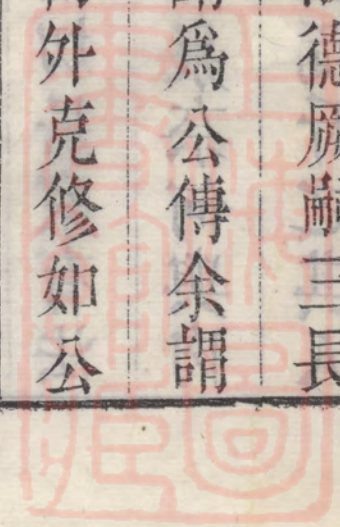 德厥嗣三長
爲公傳余謂
外克修如公